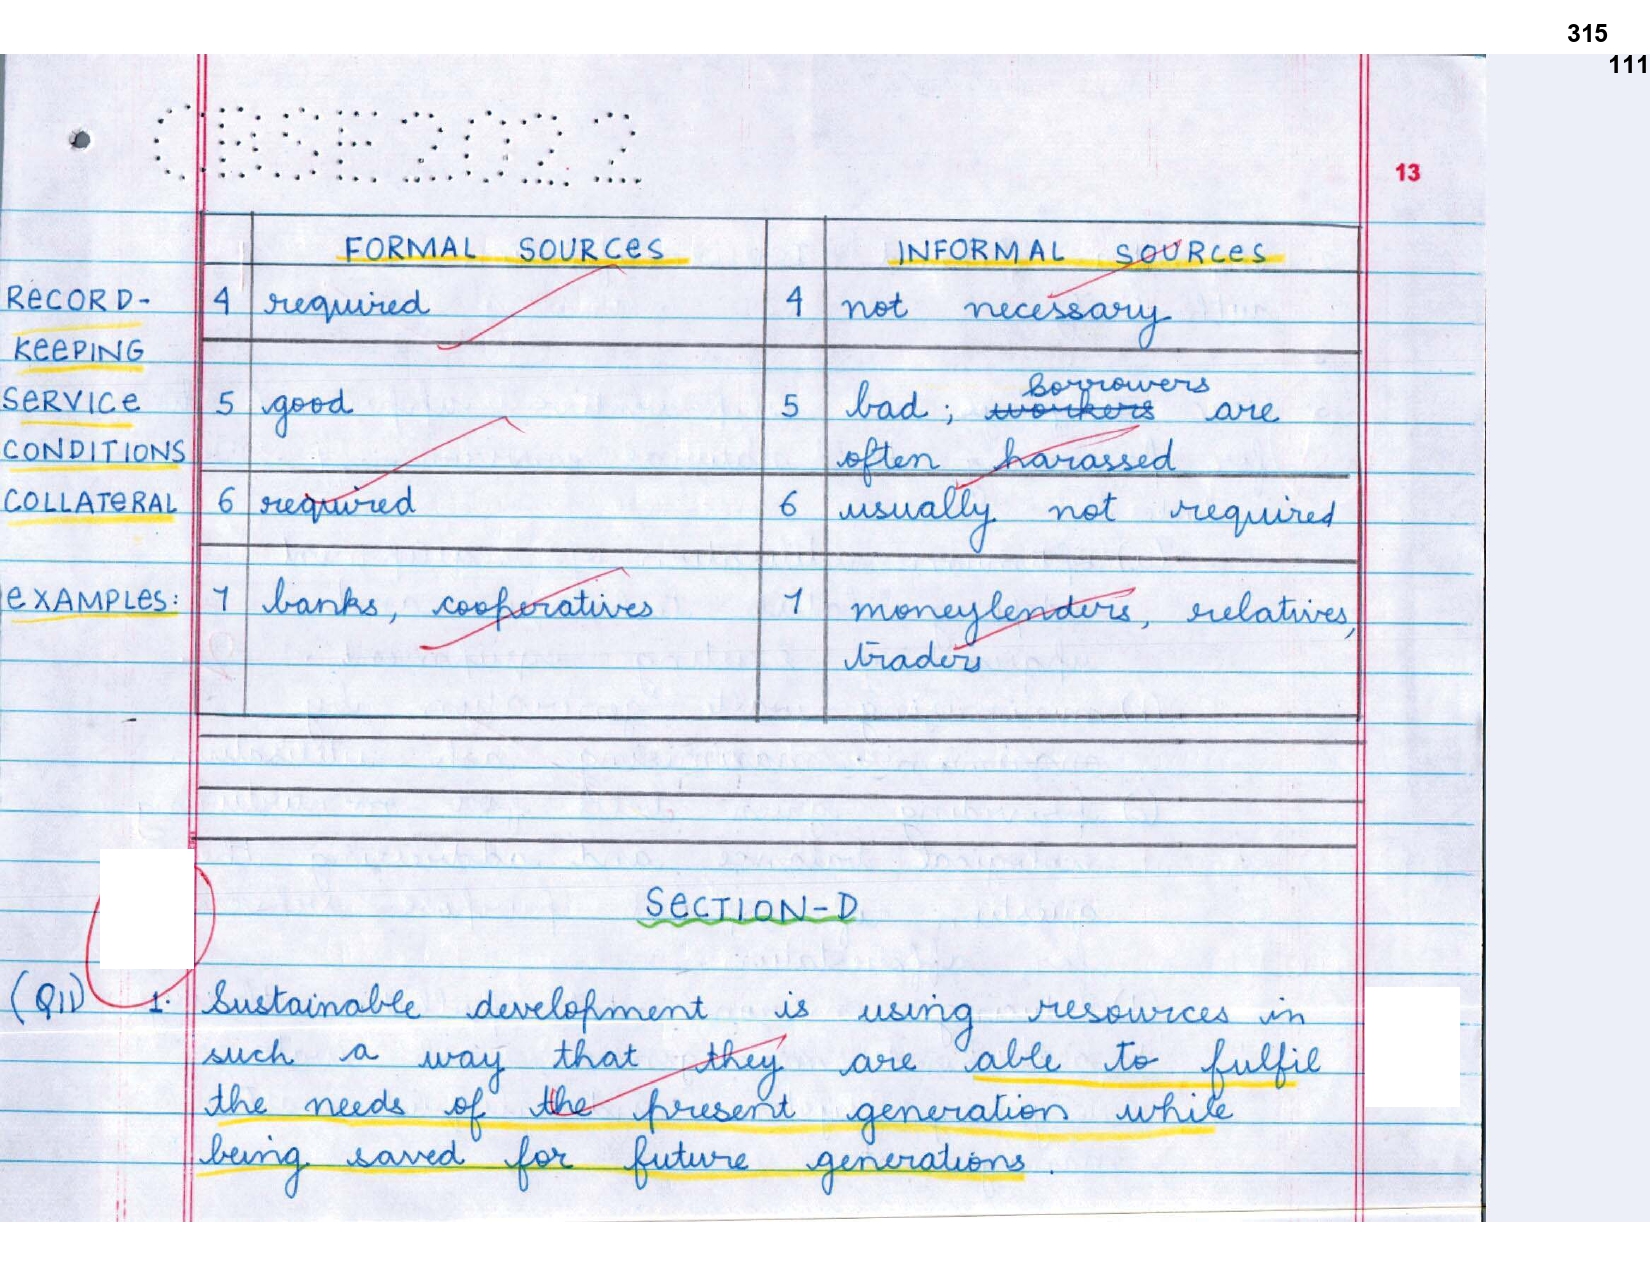 315
111
CBSE2022
13
FORMAL SOURCES INFORMAL SOURCES
RECORD- 4 required 4 not necessary
KEEPING
borrowers
SERVICE 5 good 5 bad; workers are
CONDITIONS often harassed
COLLATERAL 6 required 6 usually not required
EXAMPLES: 7 banks, cooperatives 7 moneylenders, relatives,
traders
SECTION-D
(Q11) 1. Sustainable development is using resources in
such a way that they are able to fulfil
the needs of the present generation while
being saved for future generations.